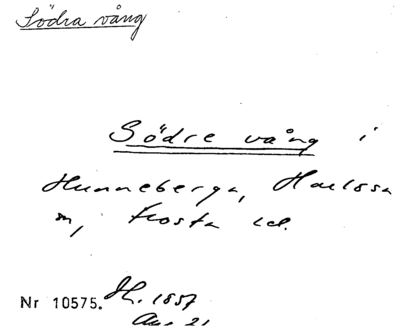 Södra vång
Södre vång i
Hunneberga, Harlösa
sn, Frosta hd.
Nr 10575. Sk. 1857
Avs 21